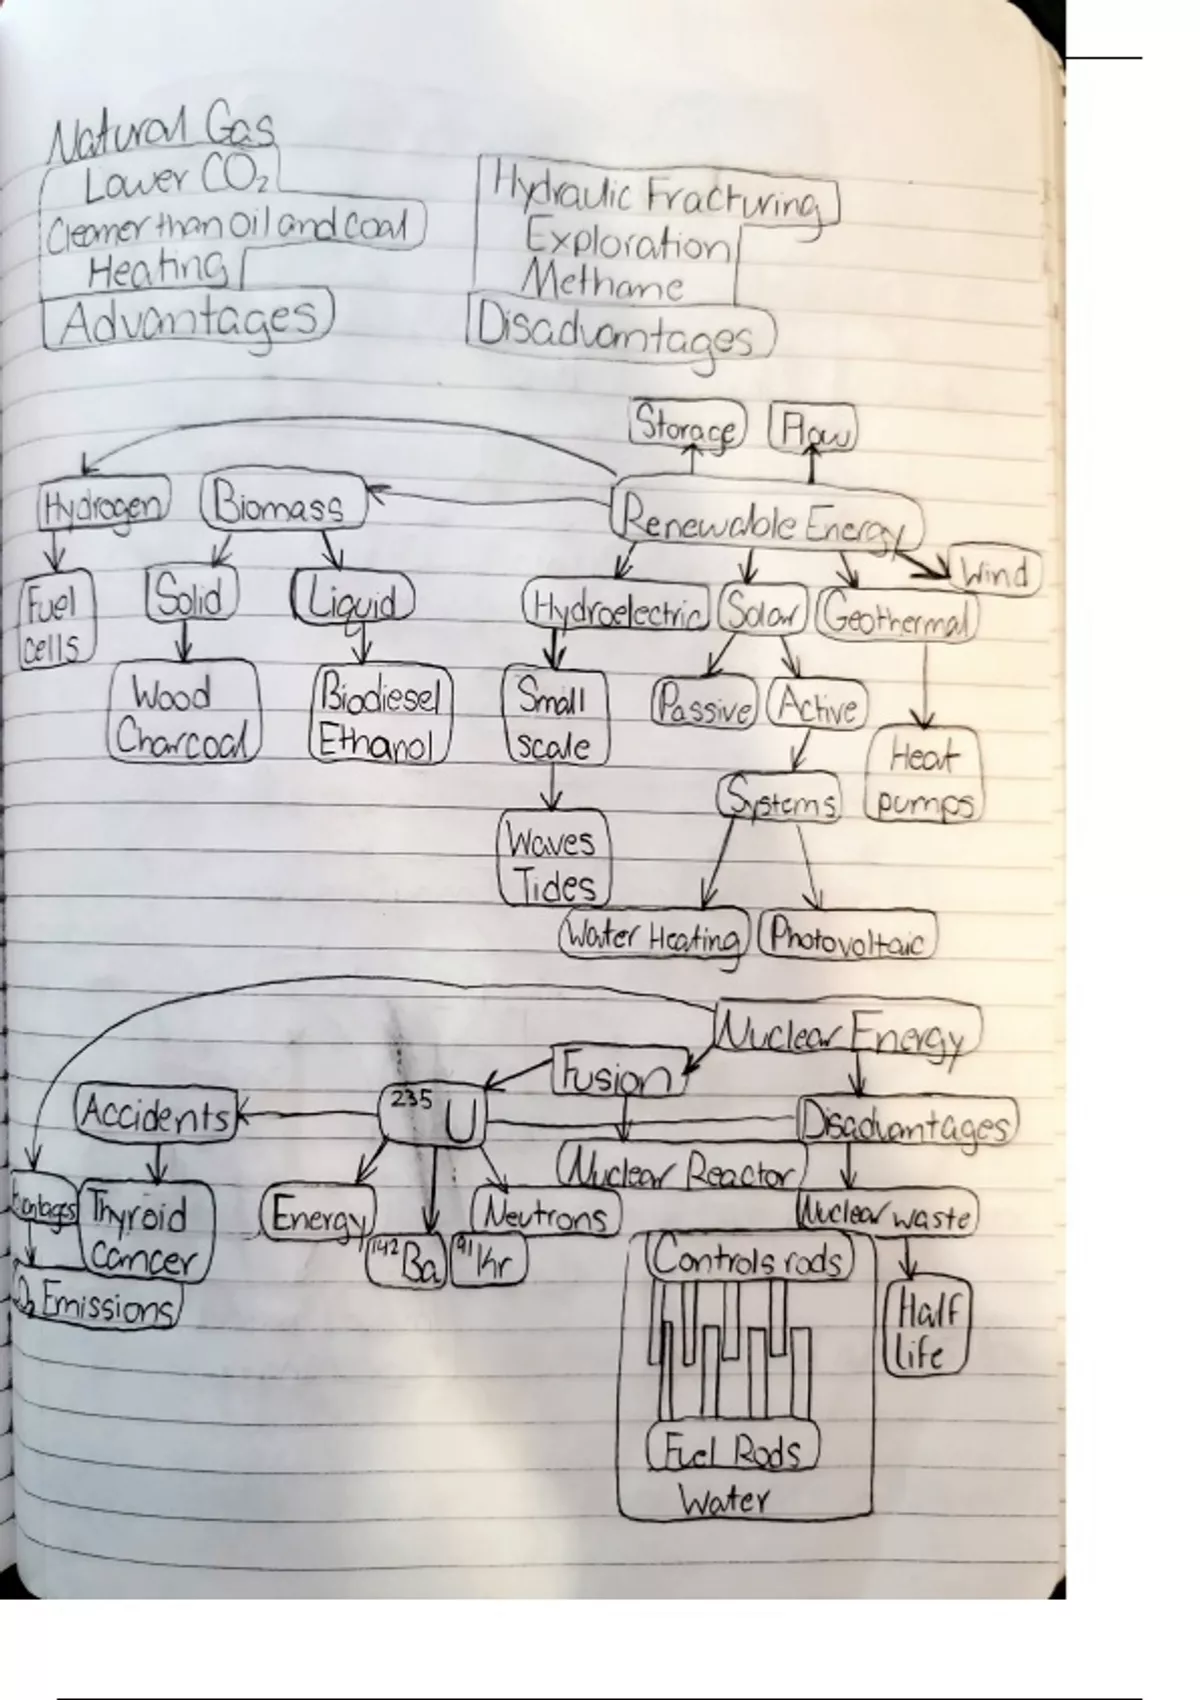 Natural Gas
Lower CO₂
Cleaner than oil and coal
Heating
Advantages
Hydraulic Fracturing
Exploration
Methane
Disadvantages
Storage
Flow
Renewable Energy
Hydrogen
Biomass
Wind
Fuel
cells
Solid
Liquid
Hydroelectric
Solar
Geothermal
Wood
Charcoal
Biodiesel
Ethanol
Small
scale
Passive
Active
Heat
pumps
Systems
Waves
Tides
Water Heating
Photovoltaic
Nuclear Energy
Fusion
Accidents
²³⁵U
Disadvantages
Nuclear Reactor
Thyroid
cancer
Energy
Neutrons
Nuclear waste
¹⁴²Ba
⁹¹Kr
Emissions
Controls rods
Half
life
Fuel Rods
Water